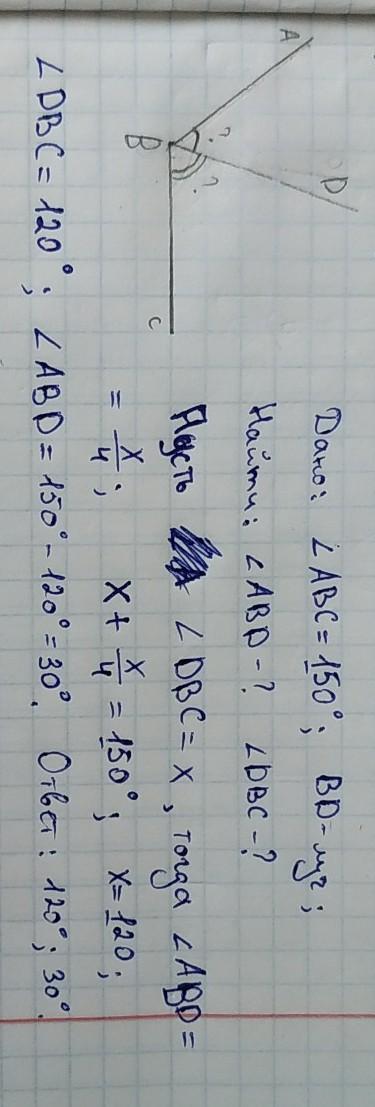 A
D
?
?
B
C
Дано: ∠ABC = 150°; BD - луч;
Найти: ∠ABD - ? ∠DBC - ?
Пусть ∠DBC = x, тогда ∠ABD =
= x/4; x + x/4 = 150°; x = 120;
∠DBC = 120°; ∠ABD = 150° - 120° = 30°. Ответ: 120°; 30°.